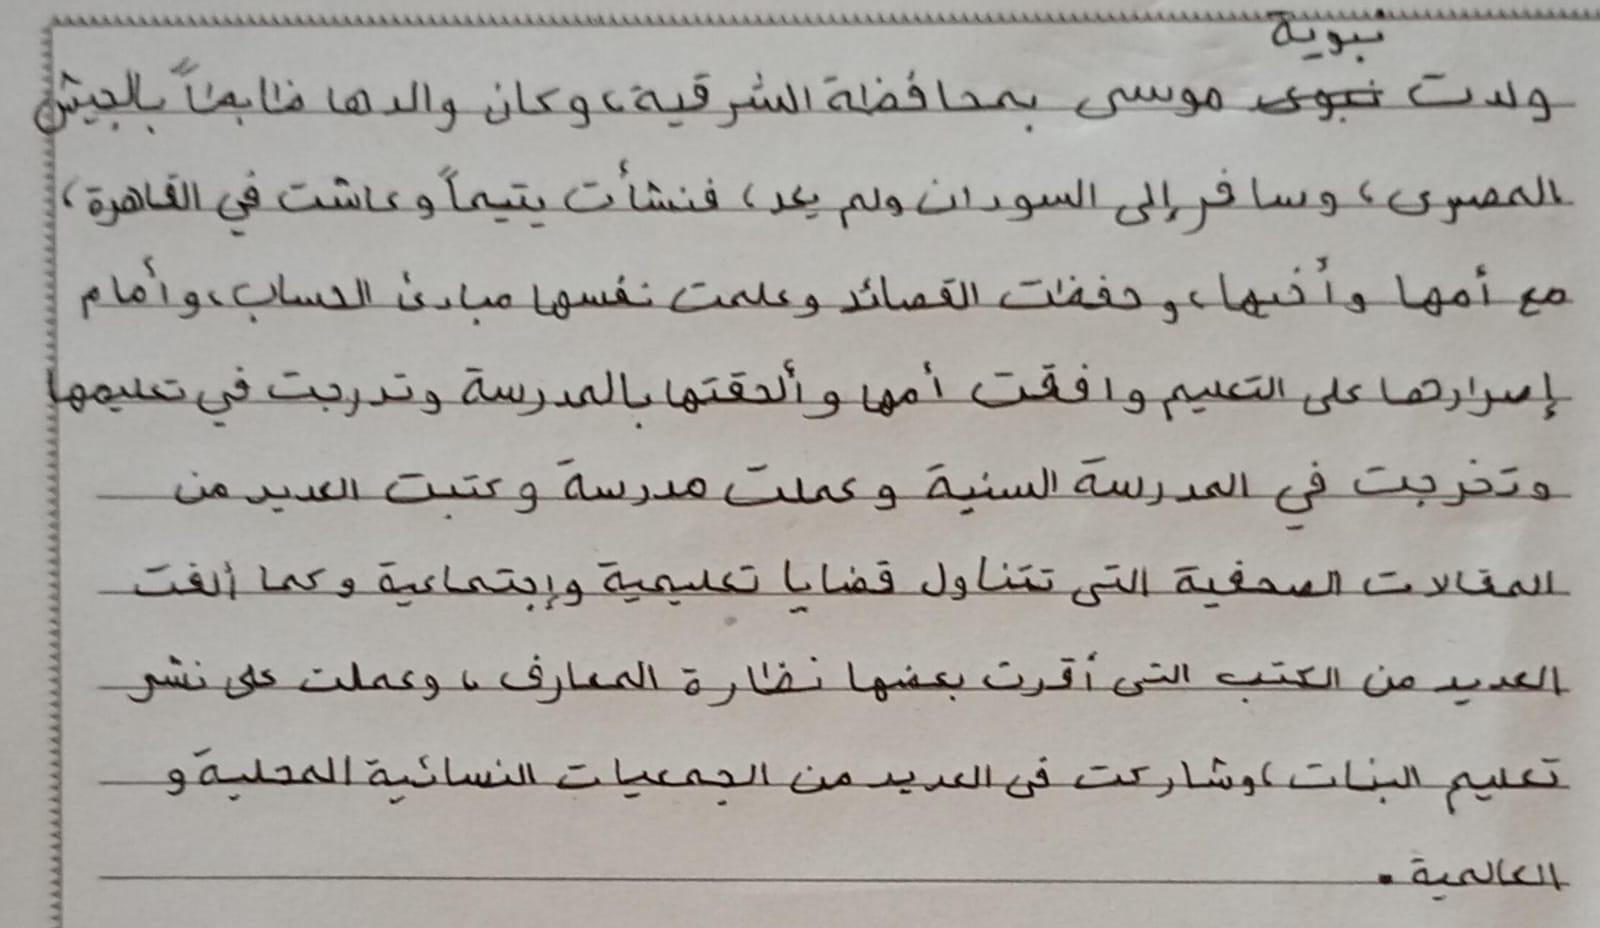 نبوية
ولدت نبوى موسى بمحافظة الشرقية، وكان والدها ضابطاً بالجيش
المصرى، وسافر إلى السودان ولم يعد، فنشأت يتيماً وعاشت في القاهرة،
مع أمها وأخيها، وحفظت القصائد وعلمت نفسها مبادئ الحساب، وأمام
إصرارها على التعليم وافقت أمها وألحقتها بالمدرسة وتدرجت في تعليمها
وتخرجت في المدرسة السنية وعملت مدرسة وكتبت العديد من
المقالات الصحفية التى تتناول قضايا تعليمية وإجتماعية وكما ألفت
العديد من الكتب التى أقرت بعضها نظارة المعارف، وعملت على نشر
تعليم البنات، وشاركت فى العديد من الجمعيات النسائية المحلية و
العالمية.